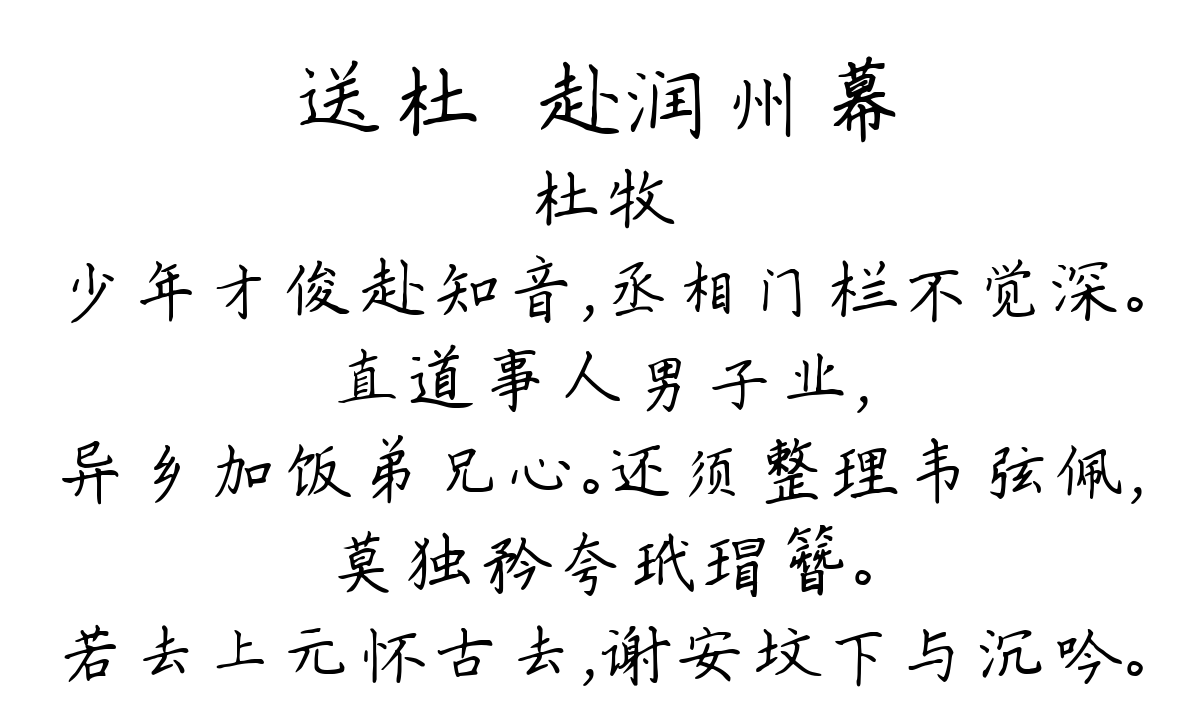 送杜 赴润州幕
杜牧
少年才俊赴知音,丞相门栏不觉深。
直道事人男子业,
异乡加饭弟兄心。还须整理韦弦佩,
莫独矜夸玳瑁簪。
若去上元怀古去,谢安坟下与沉吟。